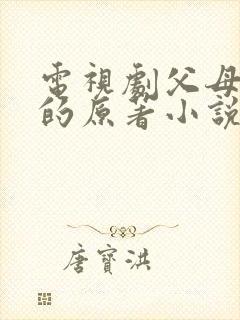 電視劇父母
的原著小說
唐寶洪